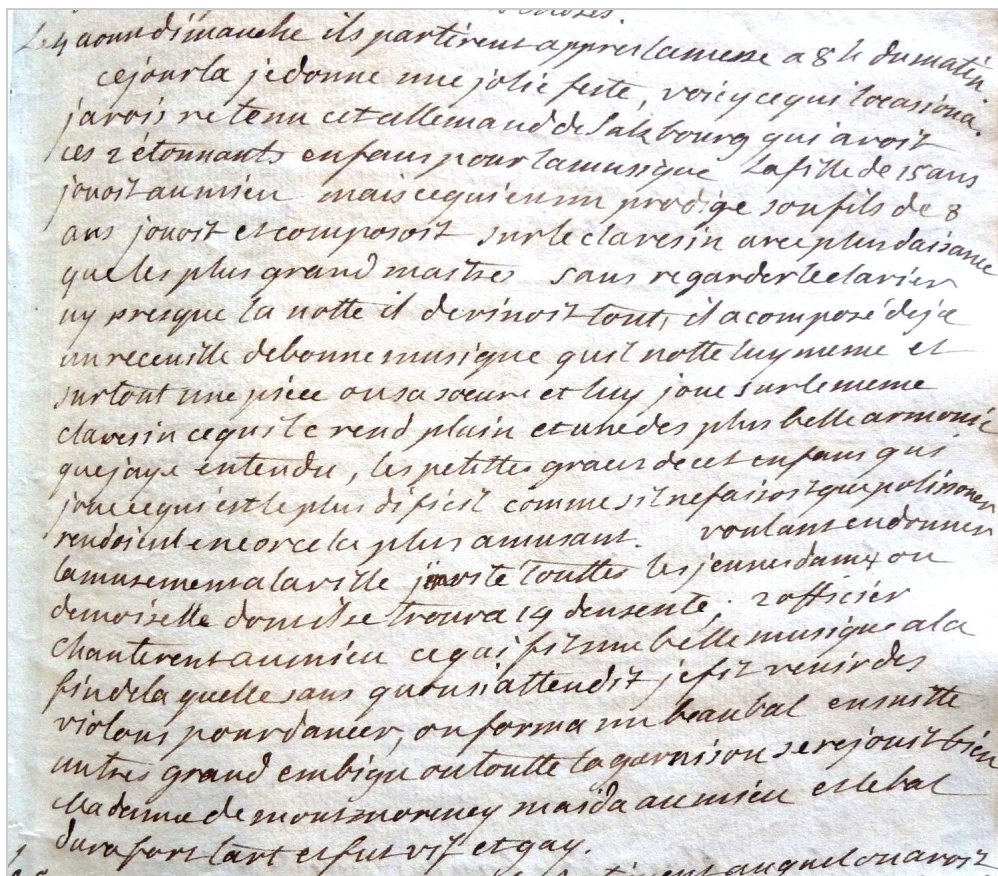 Le 4 aoust dimanche ils partirent appres la messe a 8 h du matin.
ce jour la je donne une jolie feste, voicy ce qui locasiona.
javois retenu cet allemand de Salzbourg qui avoit
ces 2 étonnants enfans pour la musique La fille de 15 ans
jouoit au mieu mais ce qui en un prodige son fils de 8
ans jouoit et composoit sur le clavesin avec plus daisance
que les plus grand maitres sans regarder le clavier
ny presque la notte il devinoit tout, il a composé déja
un receuille de bonne musique quil notte luy meme et
surtout une piece ou sa soeure et luy joue sur le meme
clavesin ce qui le rend plain et une des plus belle armonie
que jaye entendu, les petittes graces de cet enfans qui
joue ce qui est le plus dificil comme sil ne faisoit que polissoner
rendoient encor cela plus amusant. voulant en donner
lamusement a la ville jinvite touttes les jeunes dame ou
demoiselle dont il se trouva 14 densente, 2 officier
chanterent au mieu ce qui fit une belle musique a la
fin de la quelle sans quon si attendit je fit venir des
violons pour dancer, on forma un beau bal ensuitte
un tres grand embigu ou toutte la garnison se rejouit bien
Madame de montmorency maida au mieu et le bal
dura fort tart et fut vif et gay.
auquel on avoit